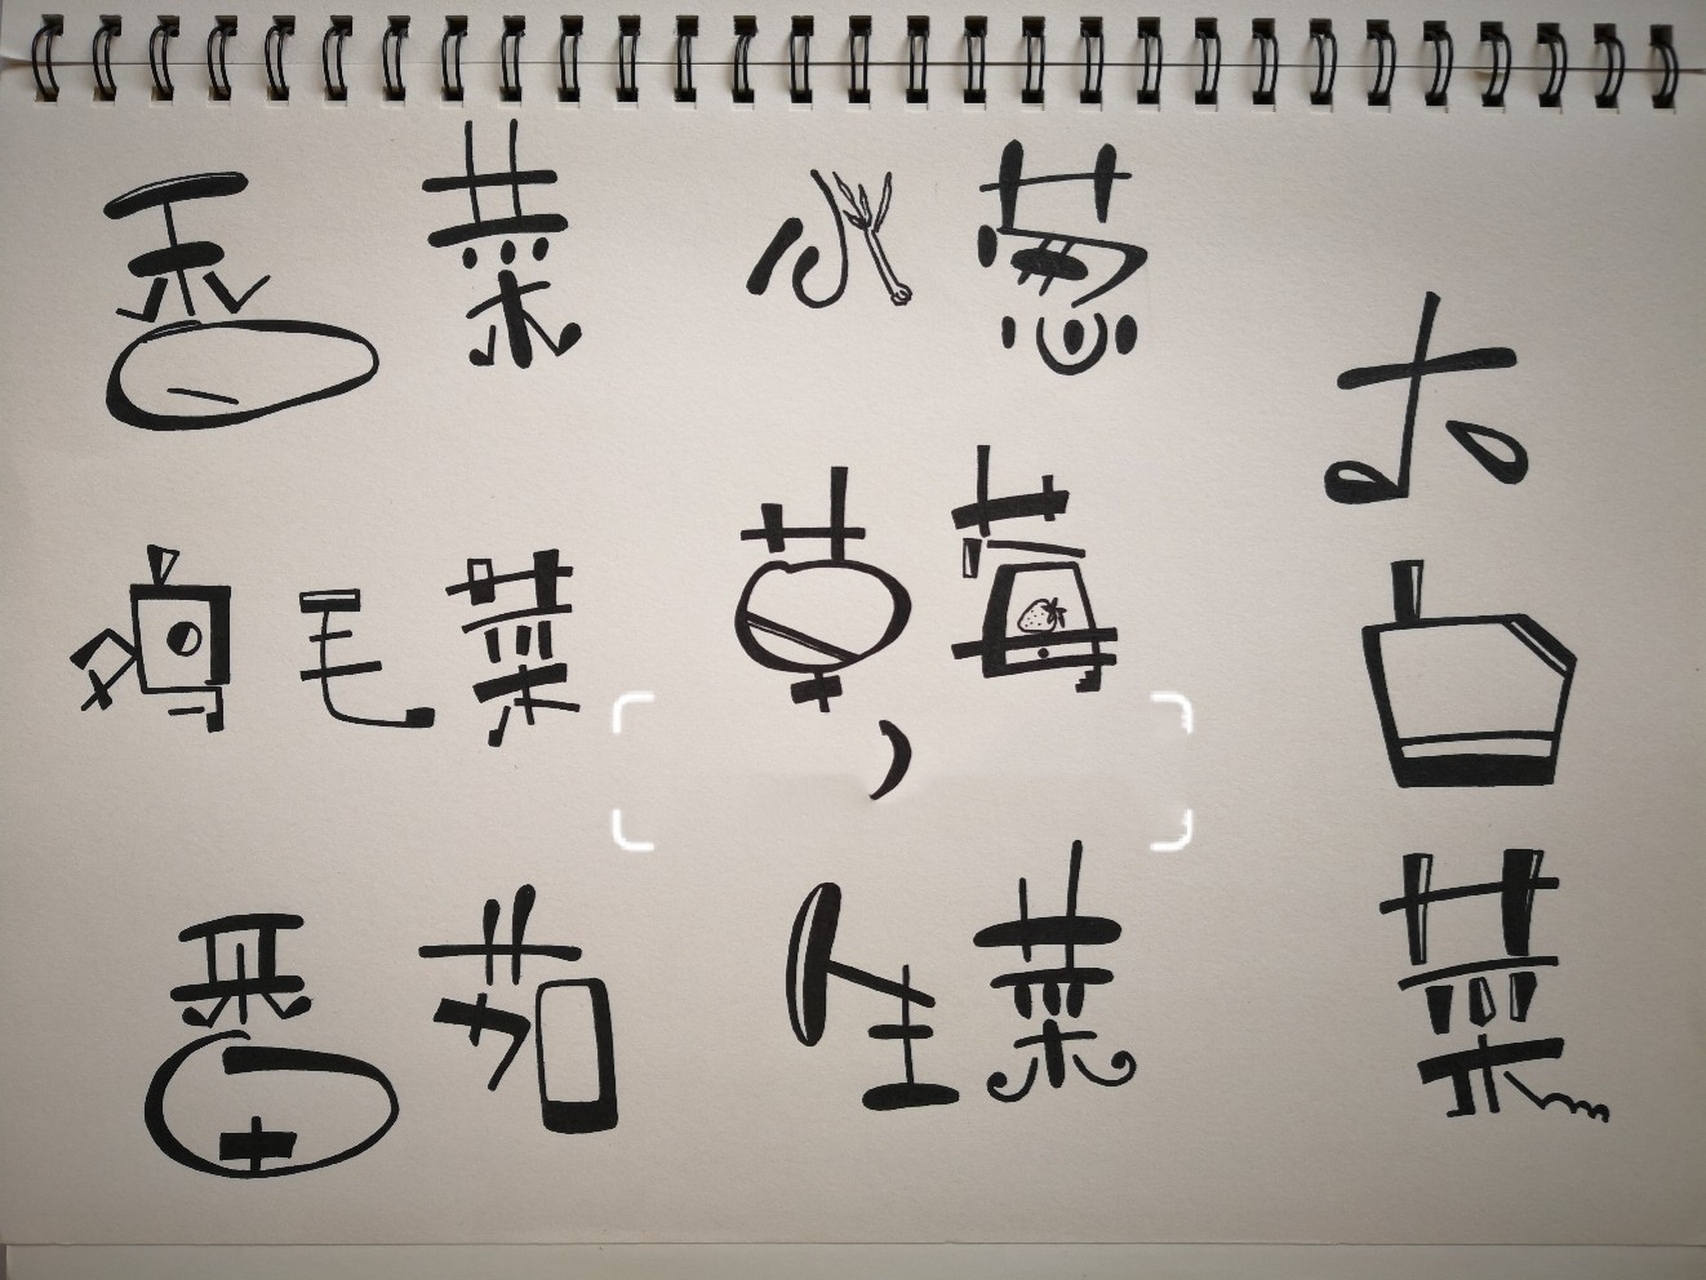 香菜 小葱
大白菜
鸡毛菜 草莓
,
番茄 生菜